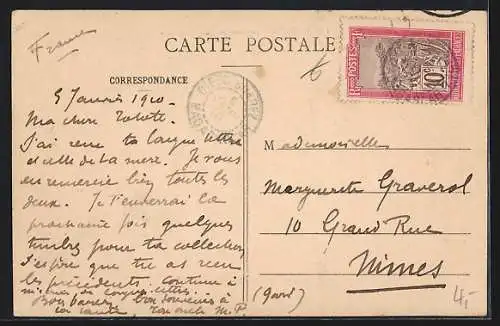 France
CARTE POSTALE
CORRESPONDANCE
POSTES
10
5 Janvier 1910.
Ma chère
J'ai reçu ta longue lettre
et celle de ta mère. Je vous
en remercie bien toutes les
deux. Je t'enverrai la
prochaine fois quelques
timbres pour ta collection
J'espère que tu as reçu
les précédents. Continue à
m'écrire de longues lettres.
bon souvenir à
ton oncle M.P.
Mademoiselle
Marguerite Graverol
10 Grand Rue
Nimes
(Gard)
4,-